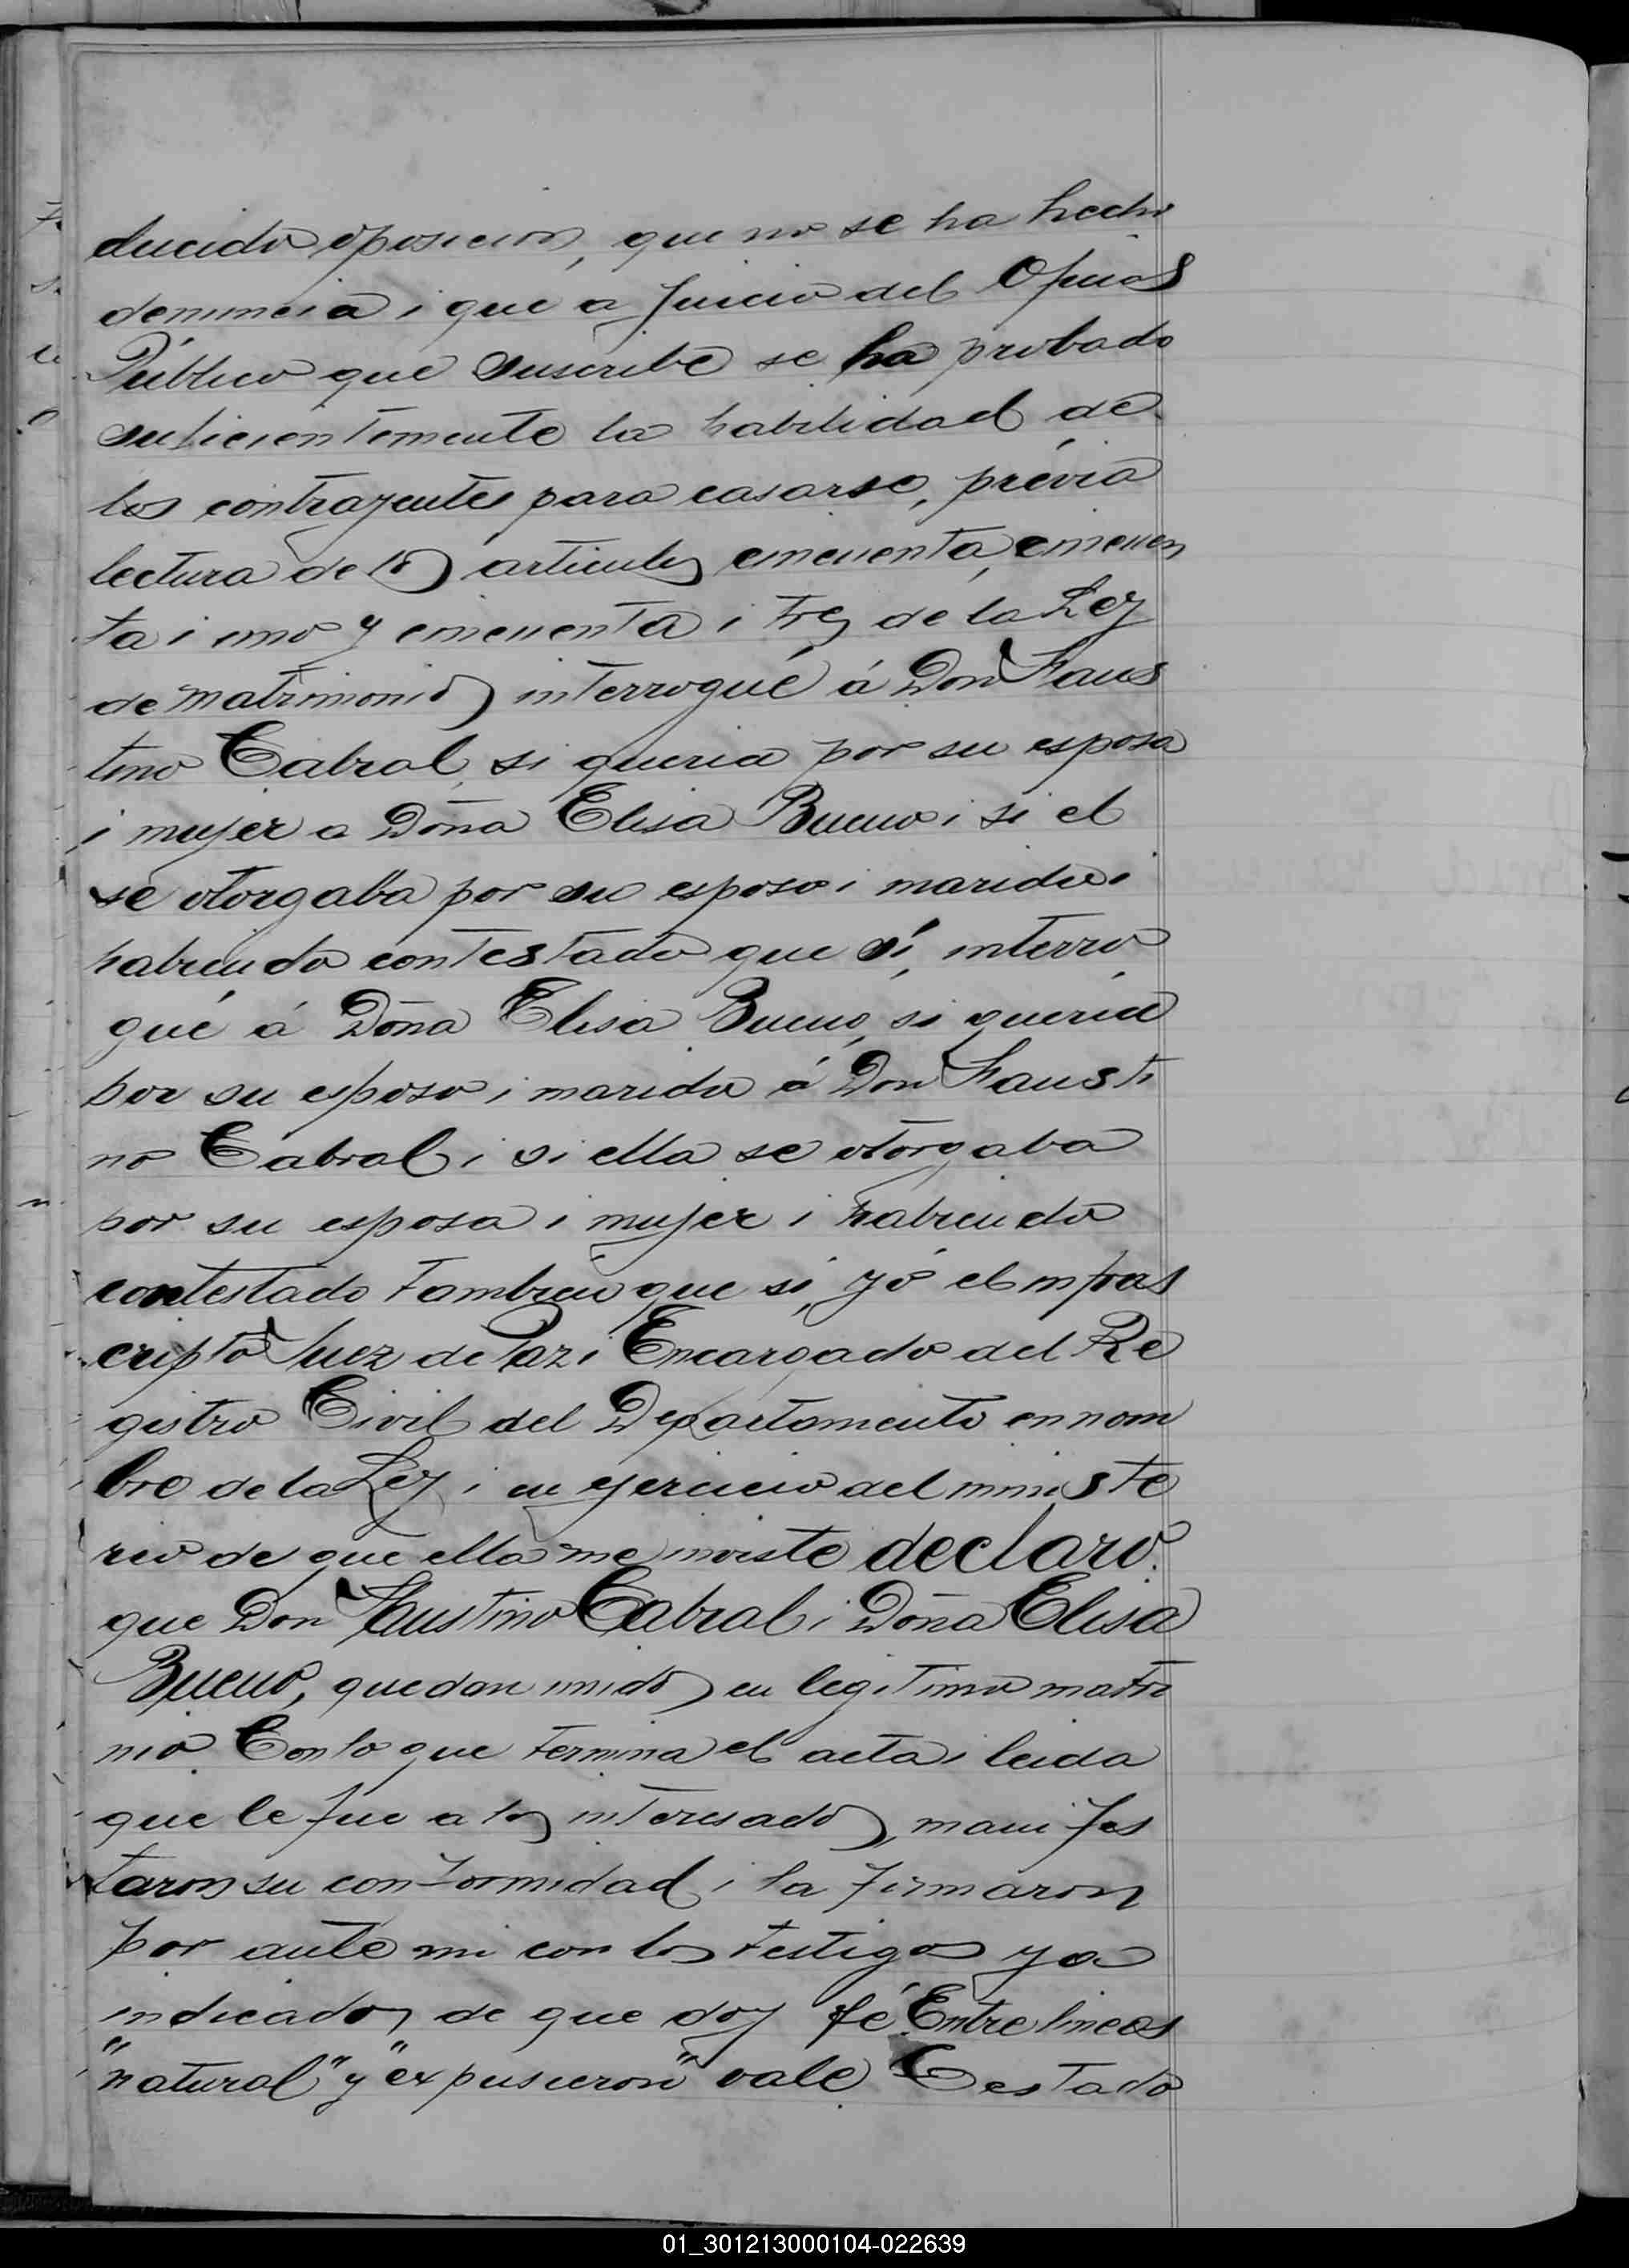 ducido oposicion, que no se ha hecho
denuncia i que a juicio del Oficial
Público que suscribe se ha probado
suficientemente la habilidad de
los contrayentes para casarse, prévia
lectura de los articulos cincuenta, cincuen
ta i uno y cincuenta i tres de la Ley
de matrimonio interrogué á Don Faus
tino Cabral, si queria por su esposa
i mujer a Doña Elisa Bueno i si el
se otorgaba por su esposo i marido i
habiendo contestado que sí, interro
gué á Doña Elisa Bueno, si quería
por su esposo i marido á Don Fausti
no Cabral i si ella se otorgaba
por su esposa i mujer i habiendo
contestado tambien que si, yó el infras
cripto Juez de Paz i Encargado del Re
gistro Civil del Departamento en nom
bre de la Ley i en ejercicio del ministe
rio de que ella me inviste declaro.
que Don Faustino Cabral i Doña Elisa
Bueno, quedan unidos en legitimo matri
nio. Con lo que termina el acta i leida
que le fue a los interesados, manifes
taron su conformidad i la firmaron
por ante mi con los testigos ya
indicados de que doy fé. Entre lineas
"natural" y "expusieron" vale. Testado
01_301213000104-022639